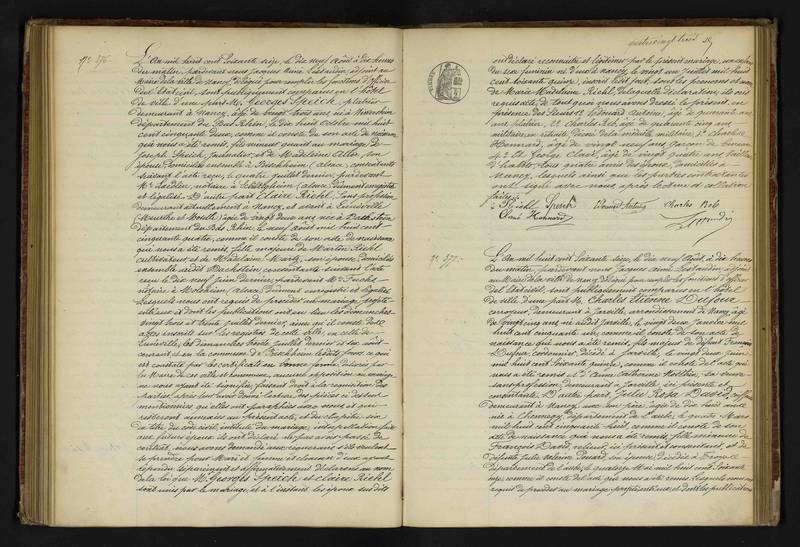 N° 376
L'an mil huit cent soixante seize, le dix neuf Août à dix heures
du matin, pardevant nous Jacques
Maire de la ville de Nancy, délégué pour remplir les fonctions d'officier
de l'Etat civil, sont publiquement comparus en l'hôtel
de ville d'une part M. Georges Speich, plâtrier
demeurant à Nancy, âgé de vingt trois ans né à
département du Bas Rhin, le dix huit octobre mil huit
cent cinquante deux, comme il conste de son acte de naissance
que nous a été remis, fils mineur quant au mariage de
Joseph Speich, journalier, et de Madeleine
épouse, domiciliés ensemble à Bischheim (Alsace) consentants
suivant l'acte reçu, le quatre juillet dernier, pardevant
notaire à Schiltigheim (Alsace) dûment enregistré
et légalisé. D'autre part Claire Riehl, sans profession
demeurant actuellement à Nancy, et avant à Lunéville
(Meurthe et Moselle) âgée de vingt deux ans née à Dachstein
département du Bas Rhin, le neuf août mil huit cent
cinquante quatre, comme il conste de son acte de naissance
que nous a été remis, fille majeure de Martin Riehl
cultivateur et de Madeleine Martz, son épouse, domiciliés
ensemble audit Dachstein, consentants suivant l'acte
reçu le dix neuf juin dernier, pardevant Me Fuchs
notaire à Molsheim (Alsace) dûment enregistré et légalisé
Lesquels nous ont requis de procéder au mariage projeté
entre eux et dont les publications ont eu lieu les dimanches
vingt trois et trente juillet dernier, ainsi qu'il conste des
actes inscrits sur les registres de cette ville, en celle de
Lunéville, les dimanches trente juillet dernier et six août
courant et en la commune de Bischheim
est constaté par les certificats en bonne forme délivrés par
les Maires de ces villes et commune, aucune opposition au mariage
ne nous ayant été signifiée, faisant droit à la réquisition des
parties, après leur avoir donné lecture des pièces ci dessus
mentionnées, que elles ont paraphées avec nous et qui
resteront annexées au présent acte, et du chapitre six
du titre du code civil, intitulé du mariage, interpellation faite
aux futurs époux ils ont déclaré ne pas avoir passé de
contrat, nous avons demandé aux comparants s'ils veulent
se prendre pour Mari et femme et chacun d'eux ayant
répondu séparément et affirmativement déclarons au nom
de la loi que M. Georges Speich et Claire Riehl
sont unis par le mariage, et à l'instant les époux susdits
quatre vingt treize
ont déclaré reconnaître et légitimer par le présent mariage, un enfant
du sexe féminin né d'eux à Nancy, le vingt un juillet mil huit
cent soixante quinze, inscrit sous les prénoms et nom
de Marie Madeleine Riehl, de laquelle déclaration, ils ont
requis acte, de tout quoi nous avons dressé le présent, en
présence des Sieurs 1°
ans plâtrier, 2° Charles Bob, âgé de quarante cinq ans
militaire en retraite, décoré de la médaille militaire, 3° Charles
Hennard, âgé de vingt neuf ans, garçon de bureau
4° et George Claer, âgé de vingt quatre ans tailleur
d'habits, tous quatre amis des époux, domiciliés à
Nancy, lesquels ainsi que les parties contractantes
ont signé avec nous après lecture et collation
faites.
Speich Charles Bob
Hennard
N° 377.
L'an mil huit cent soixante seize, le dix neuf Août à dix heures
du matin, pardevant nous Jacques
au Maire de la ville de Nancy, délégué pour remplir les fonctions d'officier
de l'Etat civil, sont publiquement comparus en l'hôtel
de ville, d'une part M. Charles Etienne Dufour
corroyeur, demeurant à Jarville, arrondissement de Nancy, âgé
de vingt cinq ans né audit Jarville, le vingt deux janvier mil
huit cent cinquante un, comme il conste de son acte de
naissance que nous a été remis, fils majeur de défunt François
Dufour, cordonnier, décédé à Jarville, le vingt deux juin
mil huit cent soixante quinze, comme il conste de l'acte qui
nous a été remis et de Anne Catherine sa veuve
sans profession, demeurant à Jarville, ici présente et
consentante. D'autre part, Julie Rosa David,
demeurant à Nancy, avec son père, âgée de dix huit ans
née à département de l'Aube, le quatre Mars
mil huit cent cinquante huit, comme il conste de son
acte de naissance que nous a été remis, fille mineure de
François David, ici présent et consentant et de
défunte Julie son épouse, décédée à Troyes
département de l'Aube, le quatorze Mai mil huit cent soixante
onze, comme il conste de l'acte que nous a été remis. Lesquels nous ont
requis de procéder au mariage projeté entre eux et dont les publications